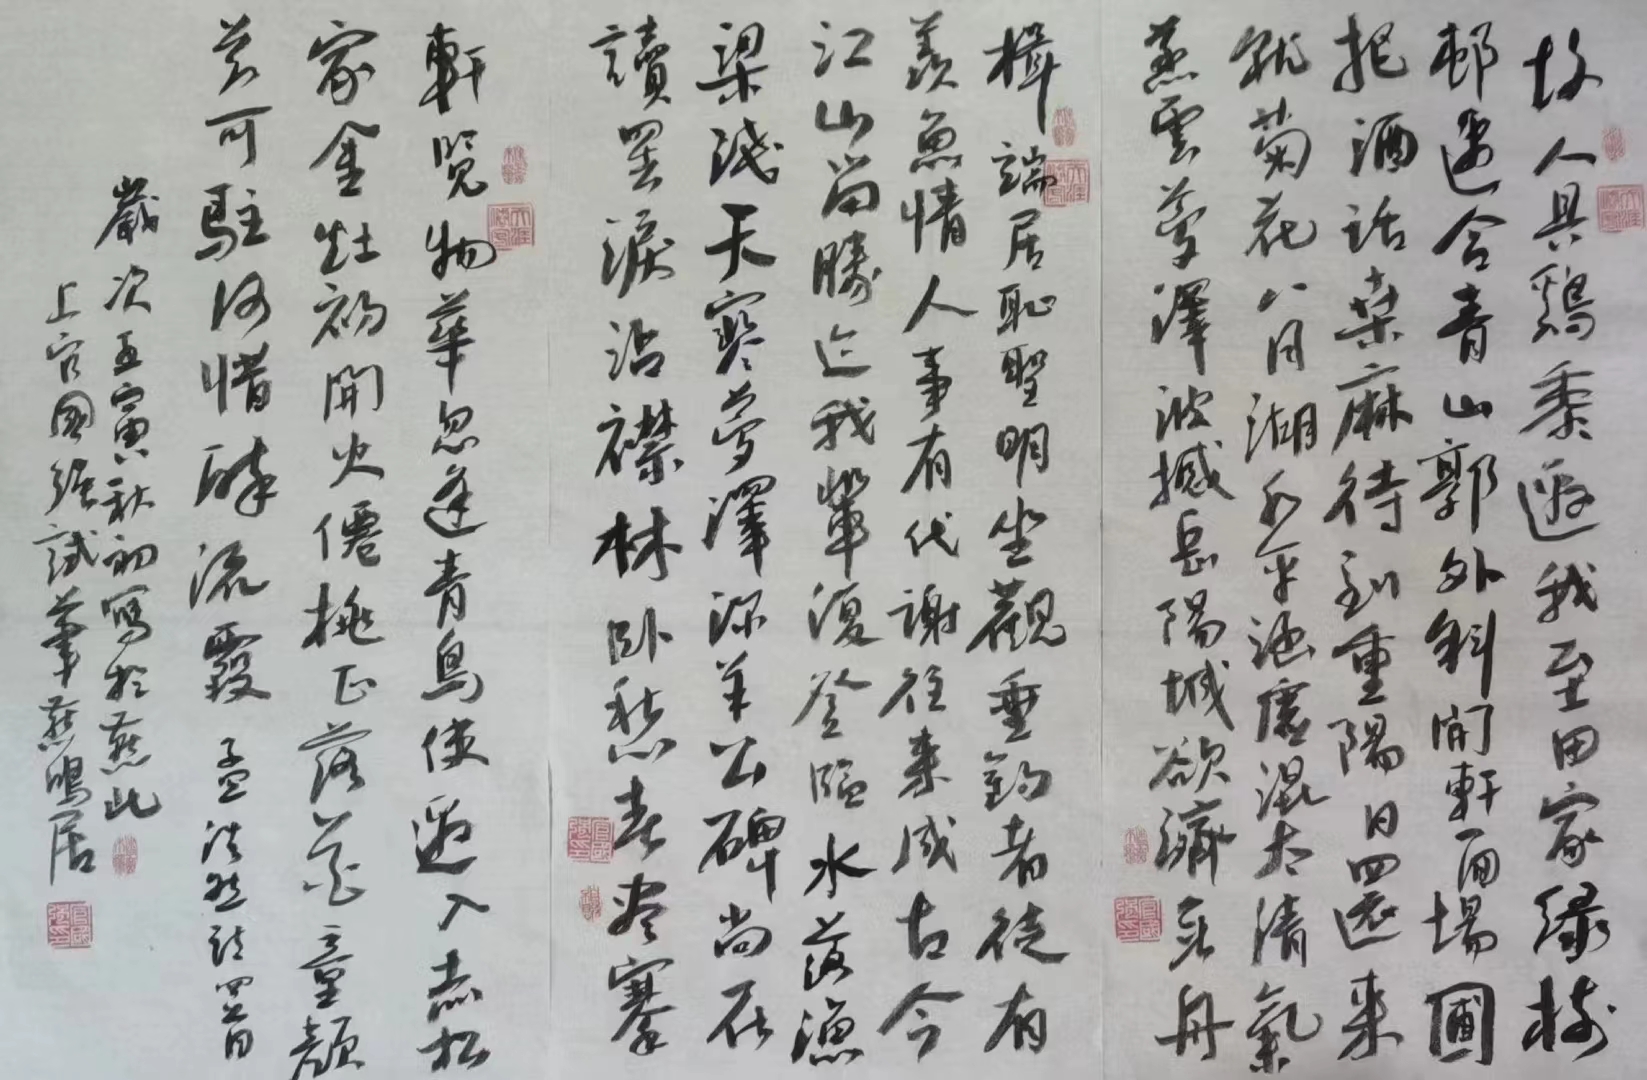 故人具鷄黍邀我至田家緑樹
邨邊合青山郭外斜開軒面場圃
把酒話桑麻待到重陽日四還來
就菊花八月湖水平涵虛混太清氣
蒸雲夢澤波撼岳陽城欲濟無舟
楫端居恥聖明坐觀垂釣者徒有
羨魚情人事有代謝往來成古今
江山留勝迹我輩復登臨水落漁
梁淺天寒夢澤深羊公碑尚在
讀罢淚沾襟林卧愁春尽搴
軒覽物華忽逢青鳥使邀入赤松
家金灶初開火僊桃正落花童顏
若可駐何惜醉流霞 孟浩然詩四首
歲次壬寅秋初寫於燕此
上官國強試筆燕鳴居